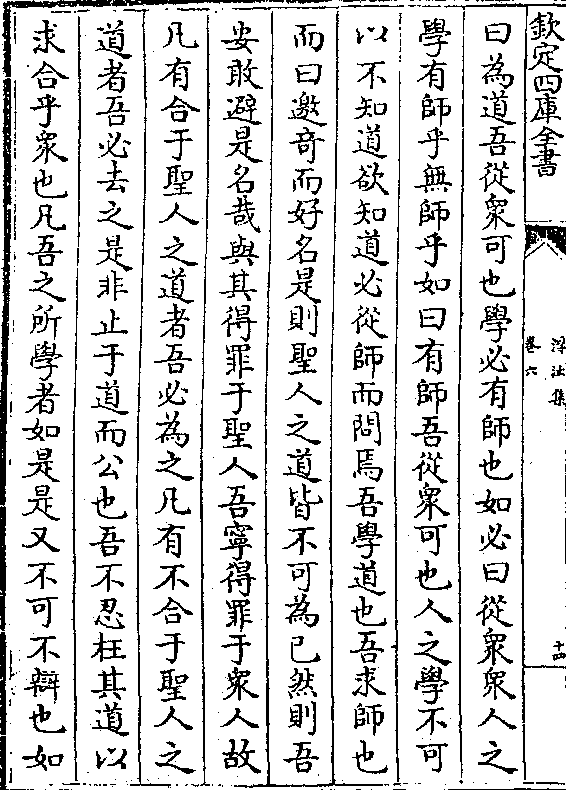 欽定四庫全書
浮沚集
卷六
十四
曰為道吾從衆可也學必有師也如必曰從衆衆人之
學有師乎無師乎如曰有師吾從衆可也人之學不可
以不知道欲知道必從師而問焉吾學道也吾求師也
而曰邀奇而好名是則聖人之道皆不可為已然則吾
安敢避是名哉與其得罪于聖人吾寧得罪于衆人故
凡有合于聖人之道者吾必為之凡有不合于聖人之
道者吾必去之是非止于道而公也吾不忍枉其道以
求合乎衆也凡吾之所學者如是是又不可不辯也如